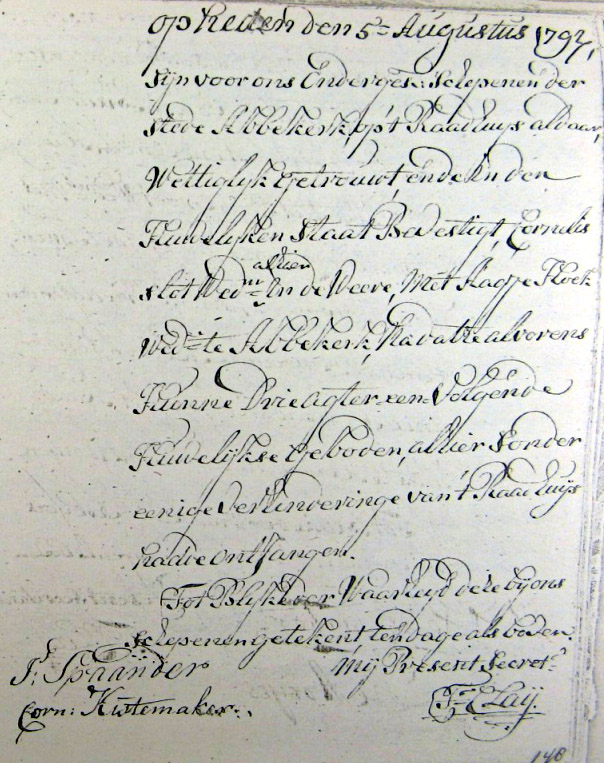 op heden den 5e Augustus 1792,
sijn voor ons Ondergesz: schepenen der
stede Abbekerk, op 't Raadhuijs aldaar,
Wettiglijk getrouwt, ende In den
Huwelijken staat Bevestigt, Cornelis
alhier
slot Wedr In de Weere, Met Aagje Hoek
wede te Abbekerk, Na dat se alvorens
Hunne Drie agter-een-Volgende
Huwelijkse geboden, alhier sonder
eenige verhinderinge van 't Raadhuijs
hadde ontfangen.
Tot Blijk der Waarheijd dese bij ons
schepenen getekent ten dage als boven.
J: Spaander
Mij Present Secrets
Corn: Kistemaker.
148